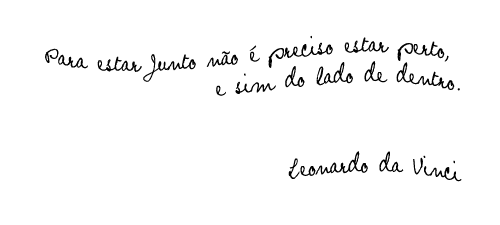 Para estar junto não é preciso estar perto,
e sim do lado de dentro.
Leonardo da Vinci